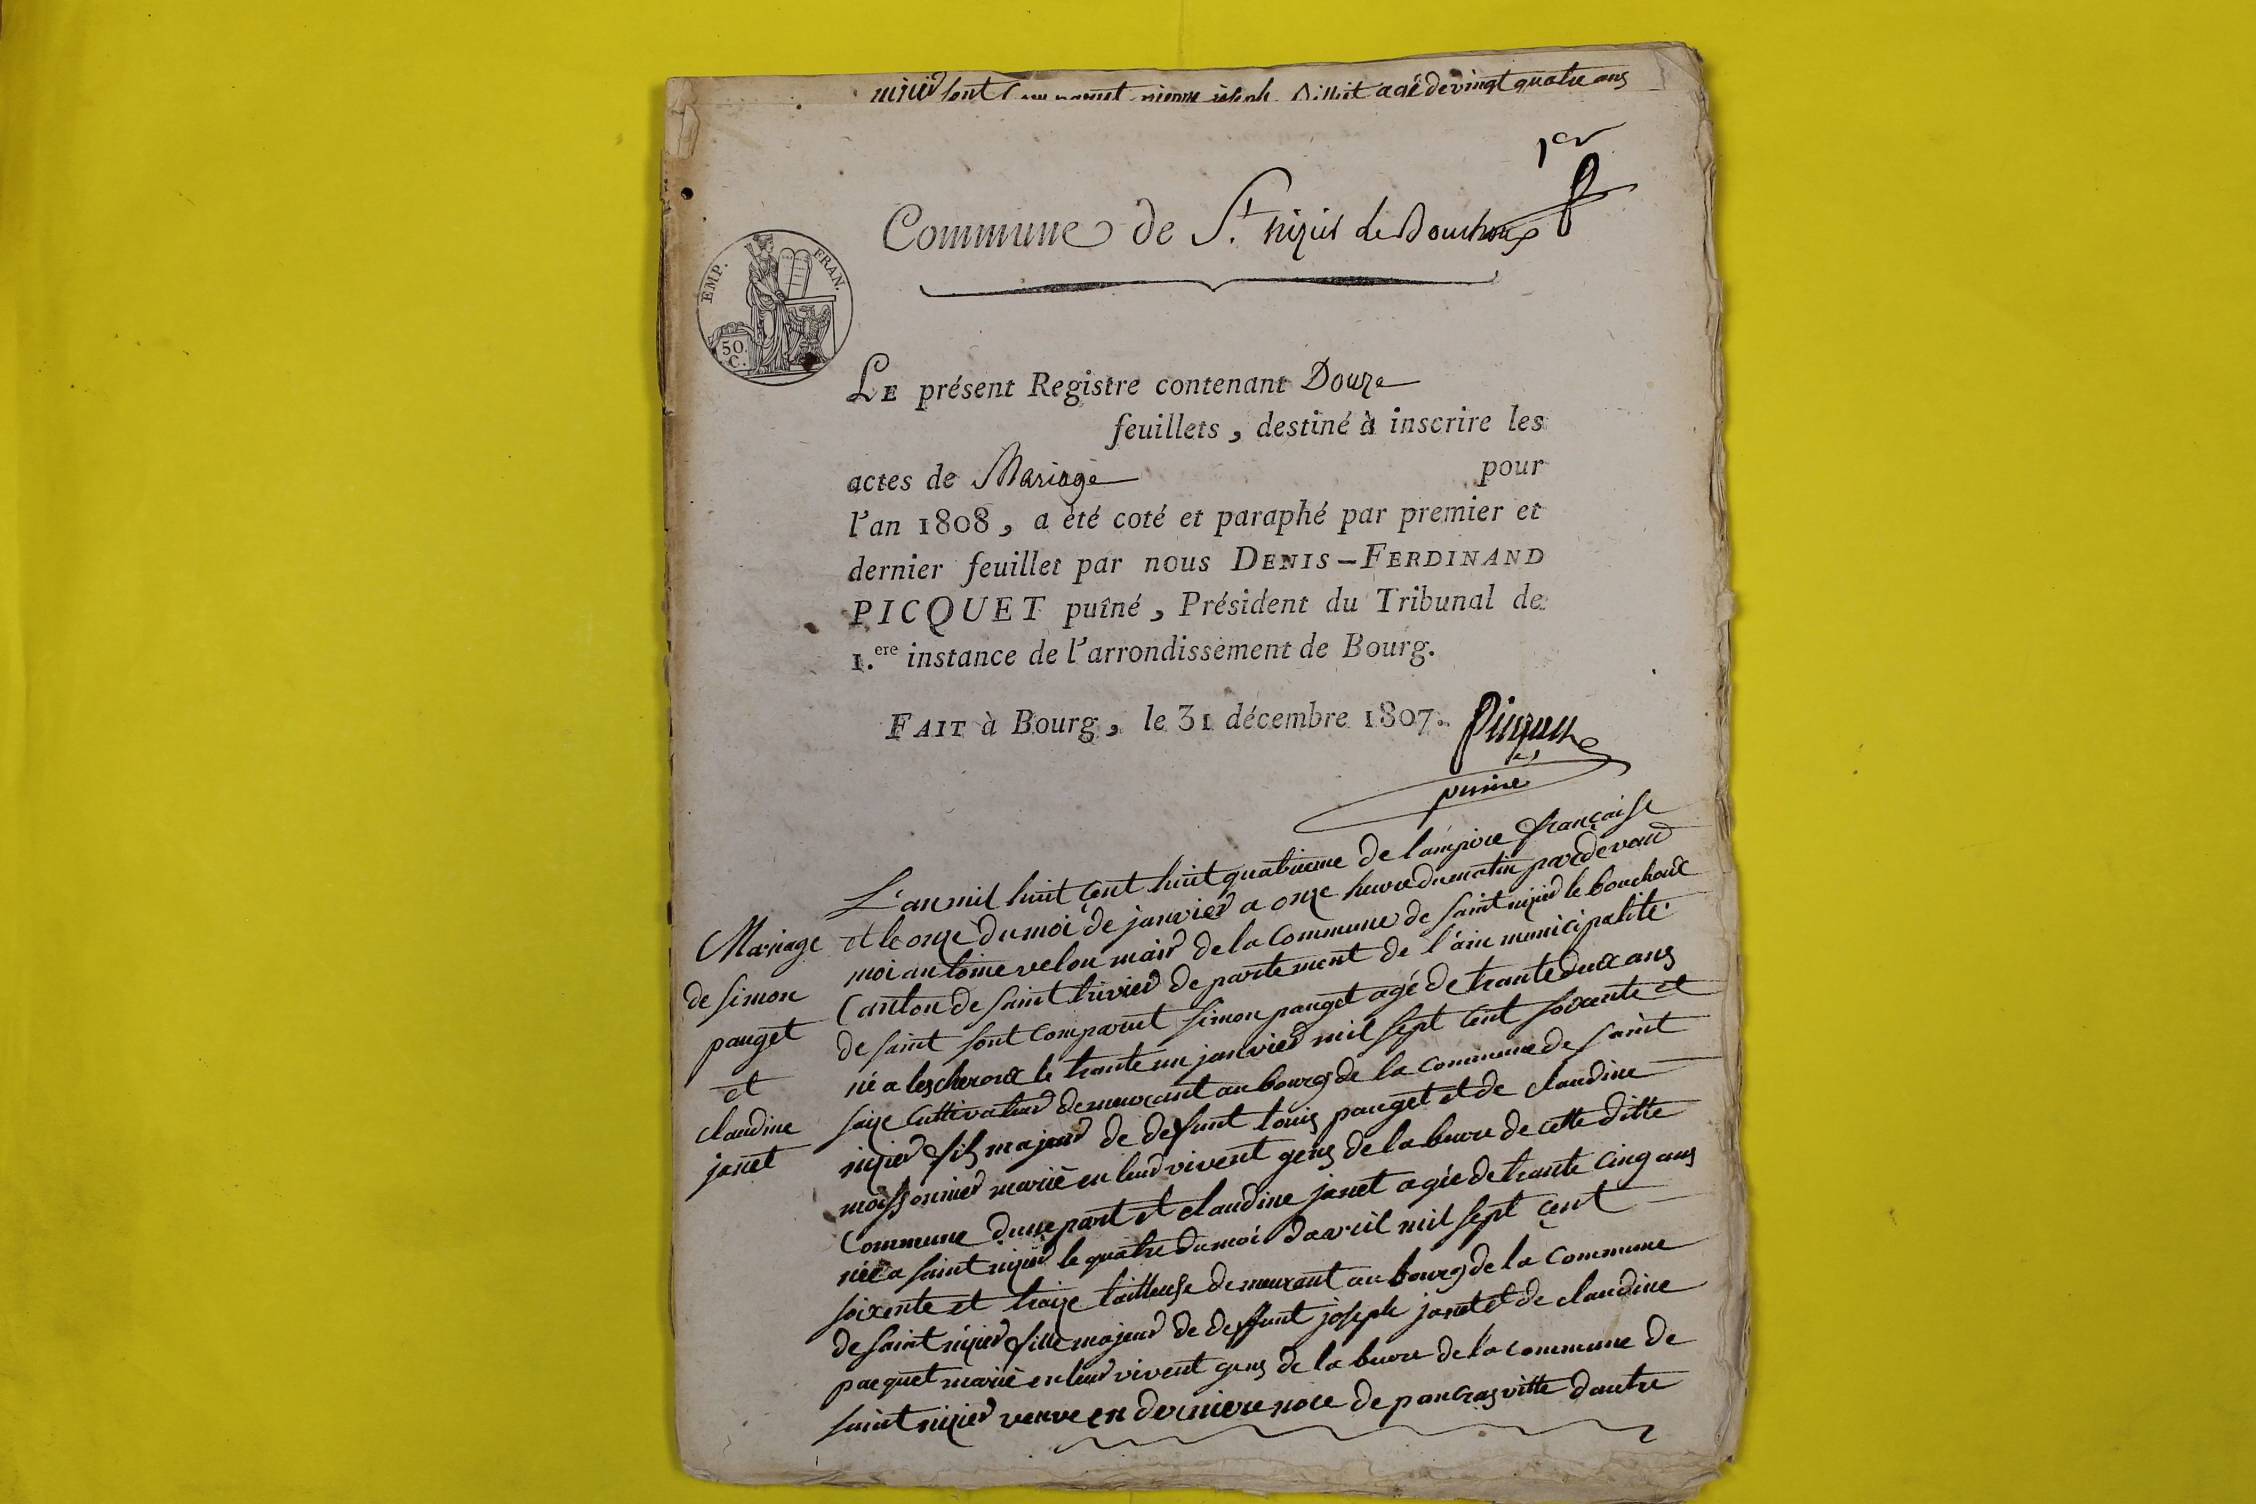 nizier sont Comparut pierre joseph agé de vingt quatre ans
1er
Commune de St. nizier le Bouchoux
EMP. FRAN.
50. C.
LE présent Registre contenant Douze
feuillets, destiné à inscrire les
actes de Mariage pour
l'an 1808, a été coté et paraphé par premier et
dernier feuillet par nous DENIS-FERDINAND
PICQUET puîné, Président du Tribunal de
1.ere instance de l'arrondissement de Bourg.
FAIT à Bourg, le 31 décembre 1807.
Picquet
puiné
Mariage
de simon
pauget
et
claudine
janet
L'an mil huit cent huit quatrieme de lampire française
et le onze du moi de janvier a onze heure du matin pardevant
moi antoine velon mair de la Commune de saint nizier le bouchoux
Canton de saint trivier departement de l'ain municipalité
de saint sont comparut simon pauget agé de trante deux ans
né a lescheroux le trante un janvier mil sept cent soixante et
saize cultivateur demeurant au bourg de la commune de saint
nizier fils majeur de defunt louis pauget et de claudine
moissonnier marié en leur vivent gens de la beure de cette ditte
Commune dune part et claudine janet agée de trante cinq ans
née a saint nizier le quatre du moi davril mil sept cent
soixente et traize tailleuse demeurant au bourg de la commune
de saint nizier fille majeur de deffunt joseph janet et de claudine
pacquet marié en leur vivent gens de la beure de la commune de
saint nizier veuve en derniere noce de pancras vitte dautre